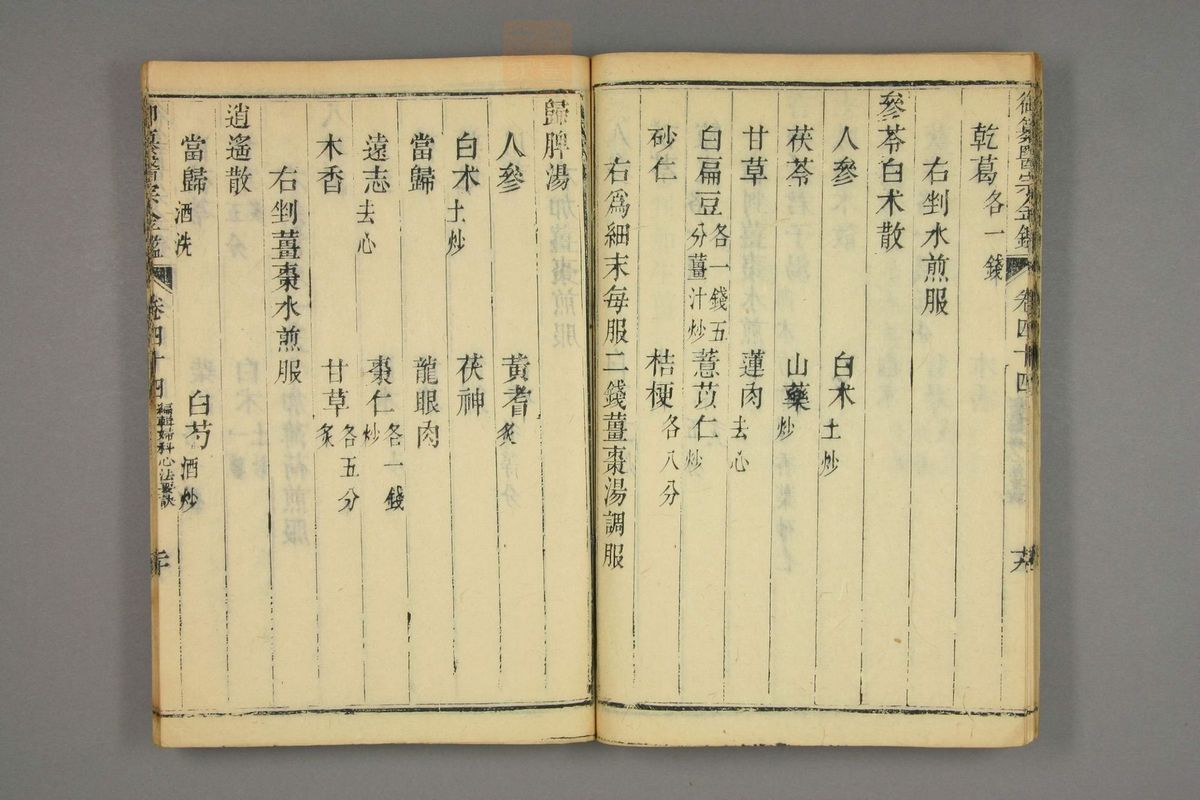 御纂醫宗金鑑
卷四十四
乾葛各一錢
右剉水煎服
參苓白术散
人參 白术土炒
茯苓 山藥炒
甘草 蓮肉去心
白扁豆各一錢五分薑汁炒 薏苡仁炒
砂仁 桔梗各八分
右爲細末每服二錢薑棗湯調服
歸脾湯
人參 黃耆炙
白术土炒 茯神
當歸 龍眼肉
遠志去心 棗仁炒各一錢
木香 甘草炙各五分
右剉薑棗水煎服
逍遙散
當歸酒洗 白芍酒炒
御纂醫宗金鑑
卷四十四
編輯婦科心法要訣